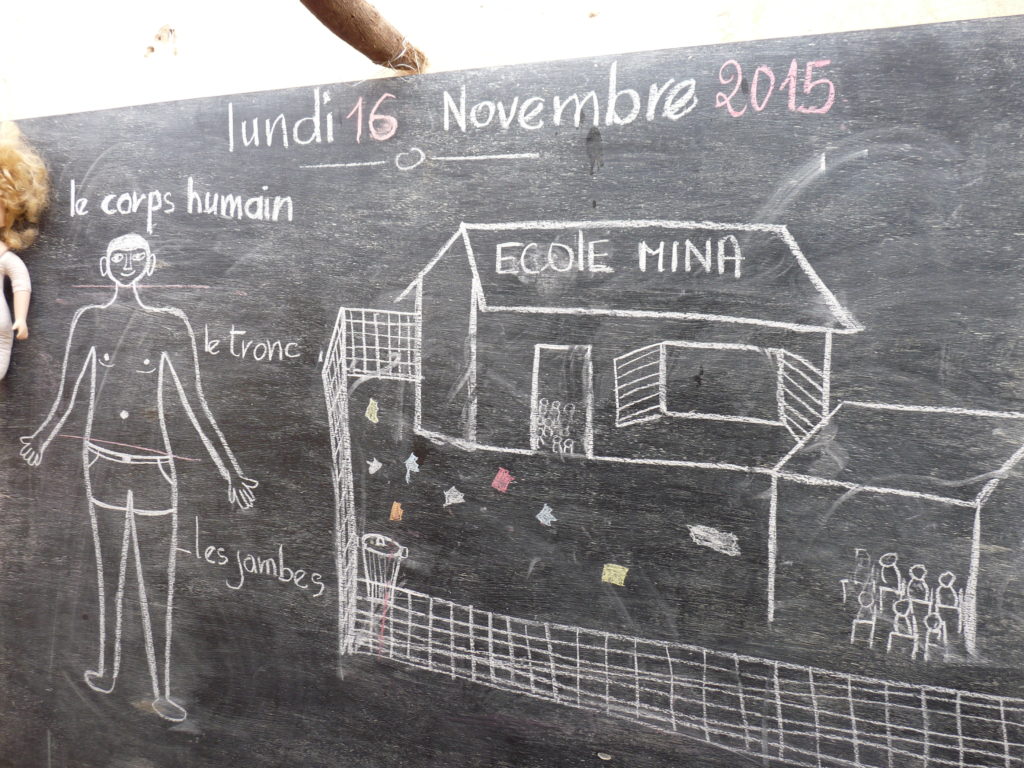 lundi 16 Novembre 2015
le corps humain
ECOLE MINA
le tronc
les jambes